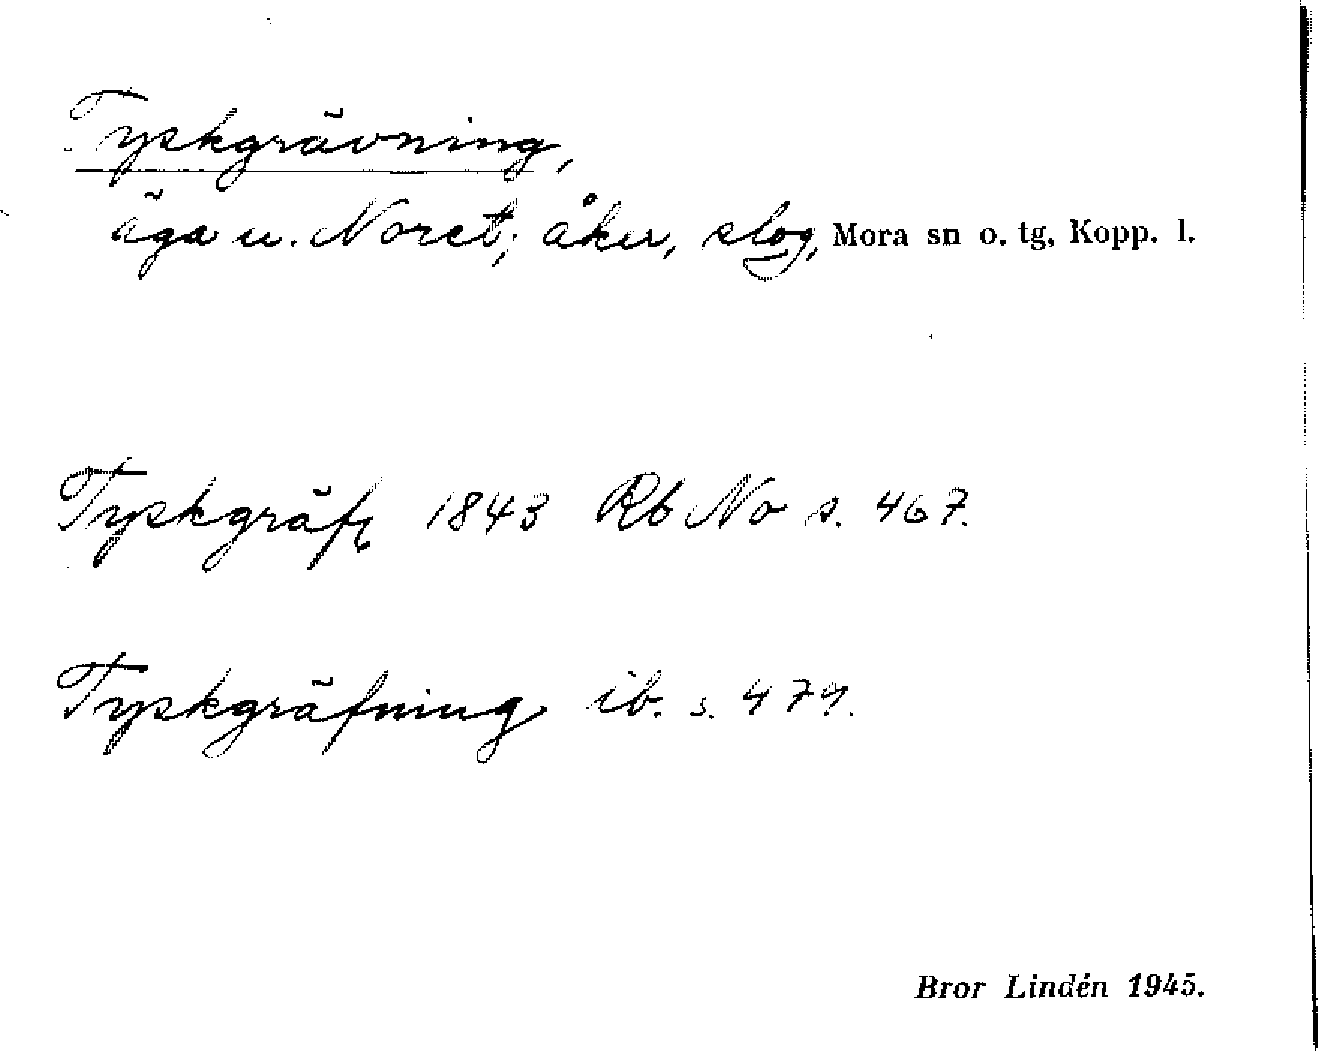 Tyskgrävning,
äga u. Noret; åker, slog, Mora sn o. tg, Kopp. l.
Tyskgräfg 1843 Rb No s. 467.
Tyskgräfning ib. s. 479.
Bror Lindén 1945.